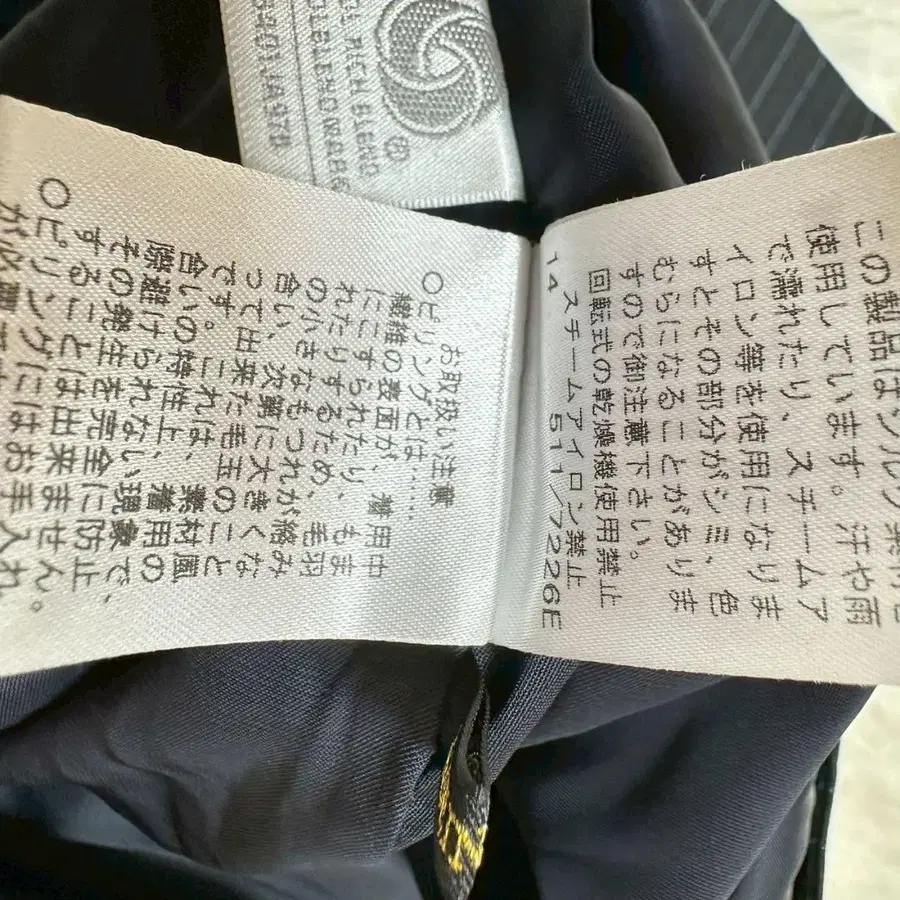 この製品はシルク素材を
使用しています。汗や雨
で濡れたり、スチームア
イロン等を使用になりま
すとその部分がシミ、色
むらになることがありま
すので御注意下さい。
回転式の乾燥機使用禁止
スチームアイロン禁止
14 511/7226E
お取扱い注意
○ピリングとは....
繊維の表面が、着用中
にこすられたり、もま
れたりするため、毛羽
の小さなもつれが絡み
合い、次第に大きくな
って出来た毛玉のこと
です。これは、素材風
合いの特性上、着用の
際避けられない現象で、
その発生を完全に防止
することは出来ません。
○ピリングにはお手入れ
が必要
OL RICH BLEND